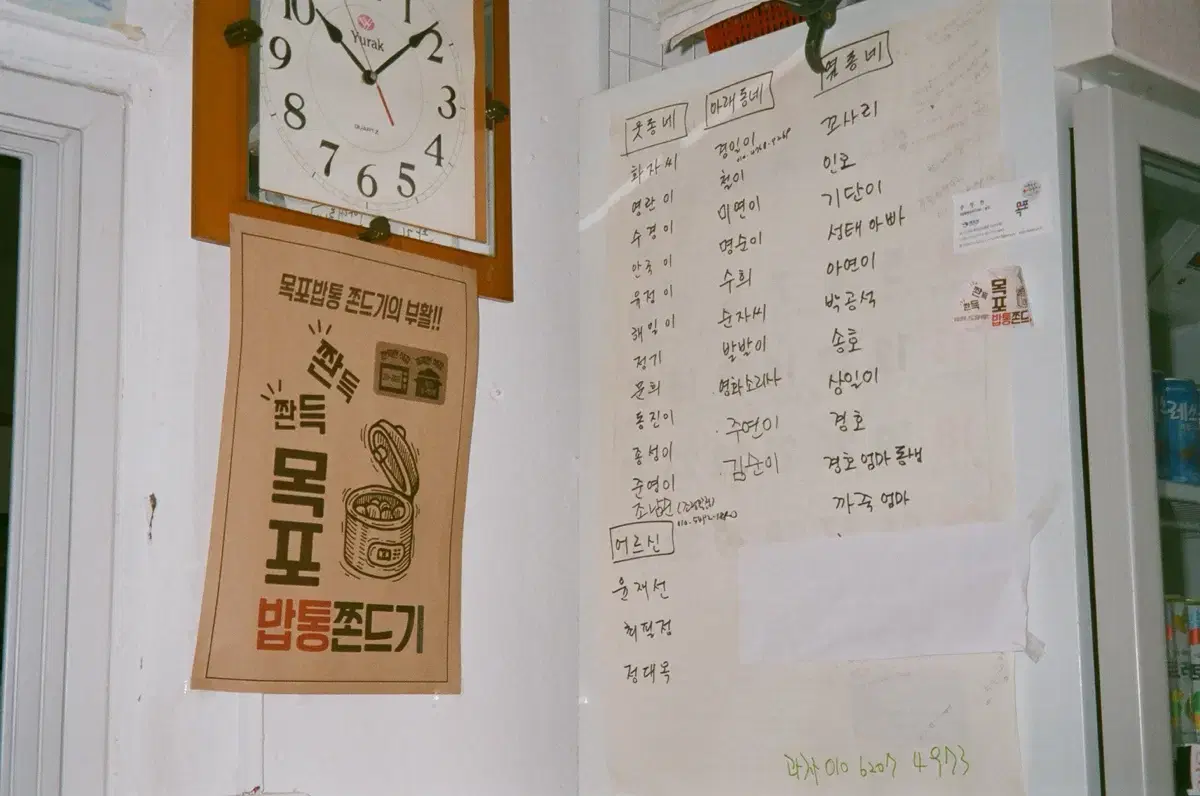 10
1
2
3
4
5
6
7
8
9
Yurak
QUARTZ
목포밥통 쫀드기의 부활!!
쫜득
쫜득
목포
밥통쫀드기
웃동네
화자씨
영란이
수경이
안국이
유정이
해일이
정기
문희
동진이
종성이
준영이
어르신
윤재선
최필점
정대옥
아래동네
경일이
철이
미연이
명순이
수희
순자씨
발발이
영화소리사
주연이
김순이
염동네
꼬사리
인호
기단이
성태 아빠
아연이
박공석
송호
상일이
경호
경호 엄마 동생
까죽 엄마
과자 010 6207 4973
목포
쫜득
쫜득
목포
밥통쫀드
레쓰